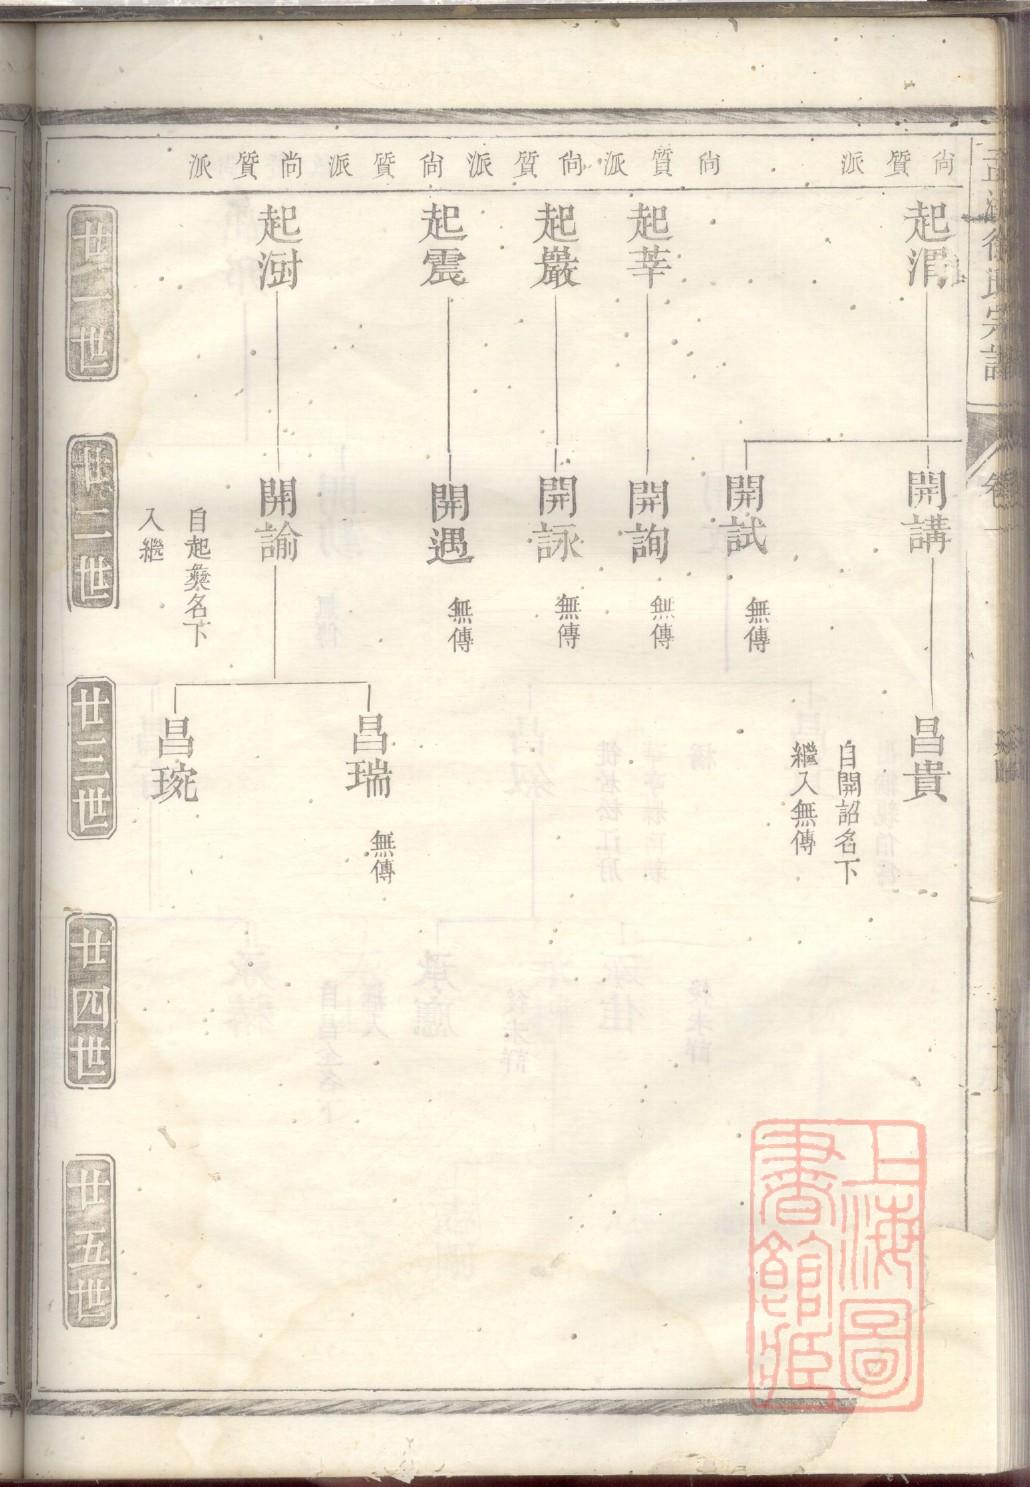 尚質派
尚質派
尚質派
尚質派
尚質派
起渭
起莘
起嚴
起震
起澍
廿一世
開講
開試
無傳
開詢
無傳
開詠
無傳
開遇
無傳
開諭
自起彜名下
入繼
廿二世
昌貴
自開詔名下
繼入無傳
昌瑞
無傳
昌琬
廿三世
廿四世
廿五世
徐氏宗譜
卷一
上海圖
書館藏